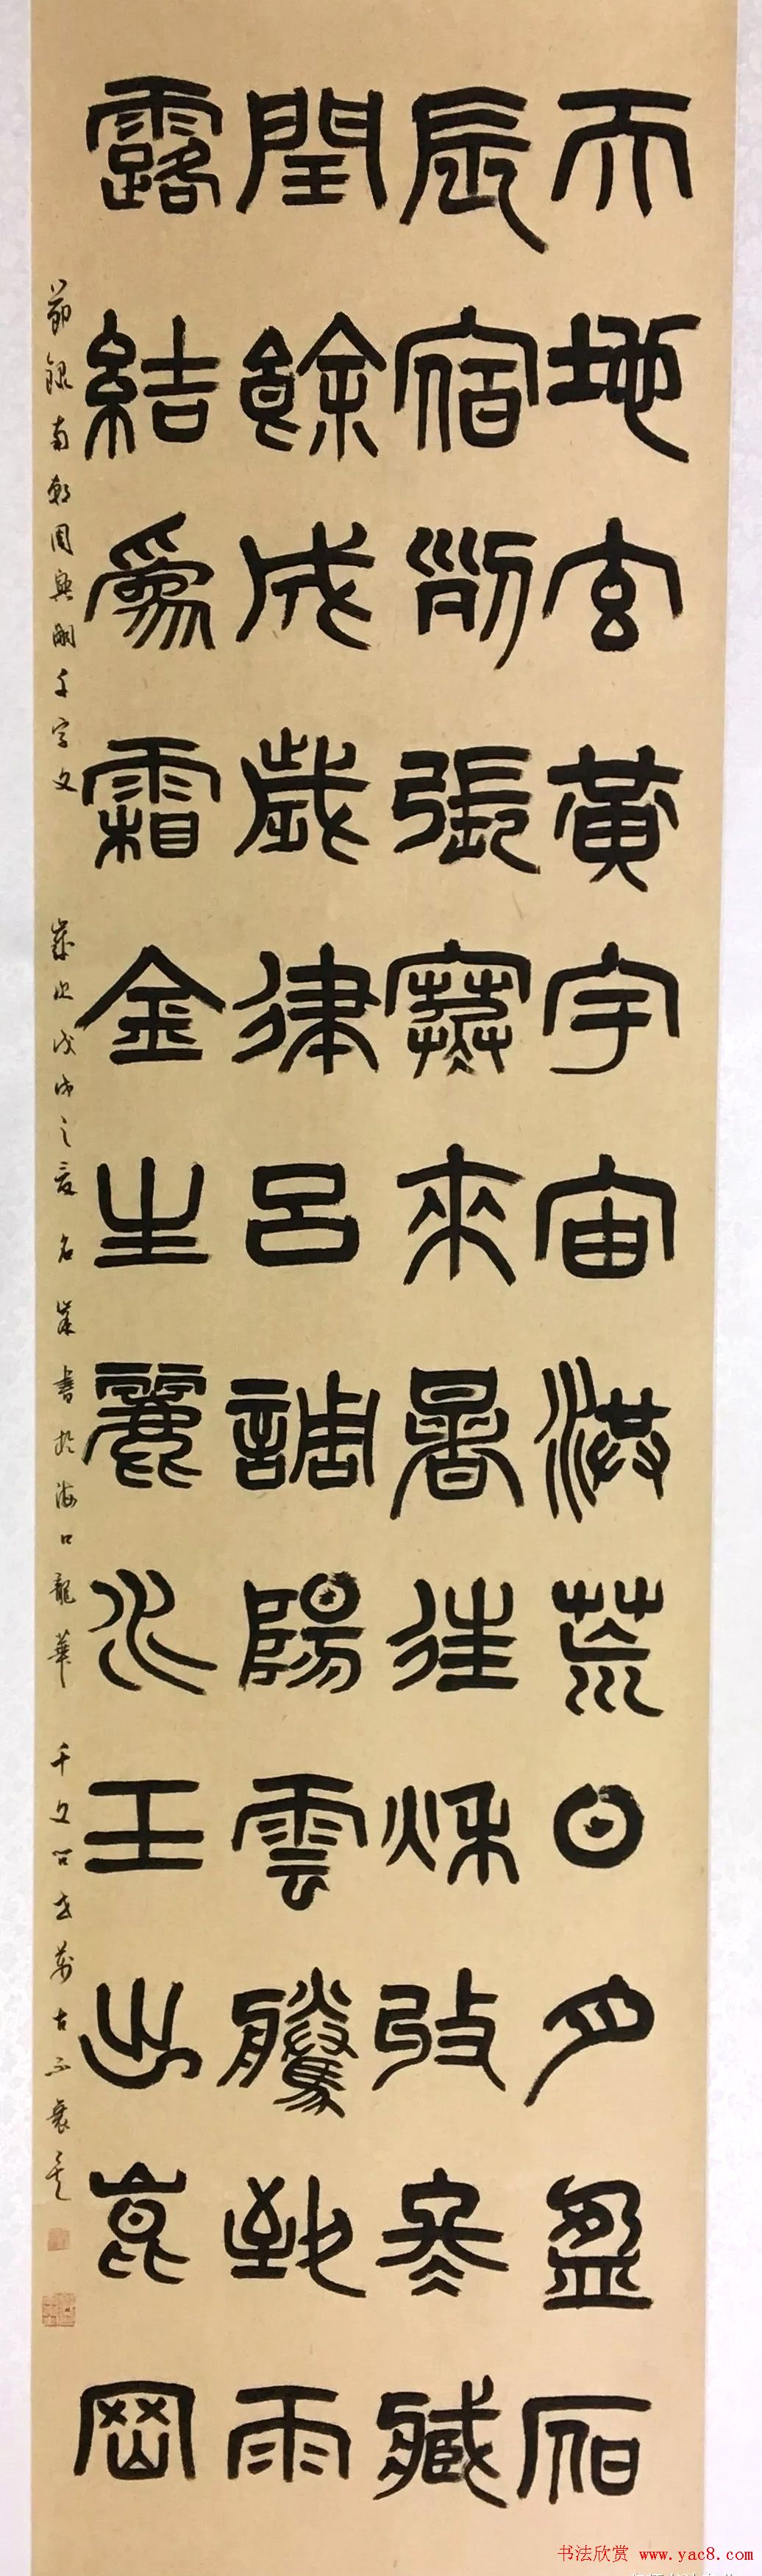 天地玄黃宇宙洪荒日月盈昃
辰宿列張寒來暑往秋收冬藏
閏餘成歲律呂調陽雲騰致雨
露結爲霜金生麗水玉出崑岡
節錄南朝周興嗣千字文 歲次戊戌之夏名業書於海口龍華 千文公世萬古不衰矣
书法欣赏 www.yac8.com